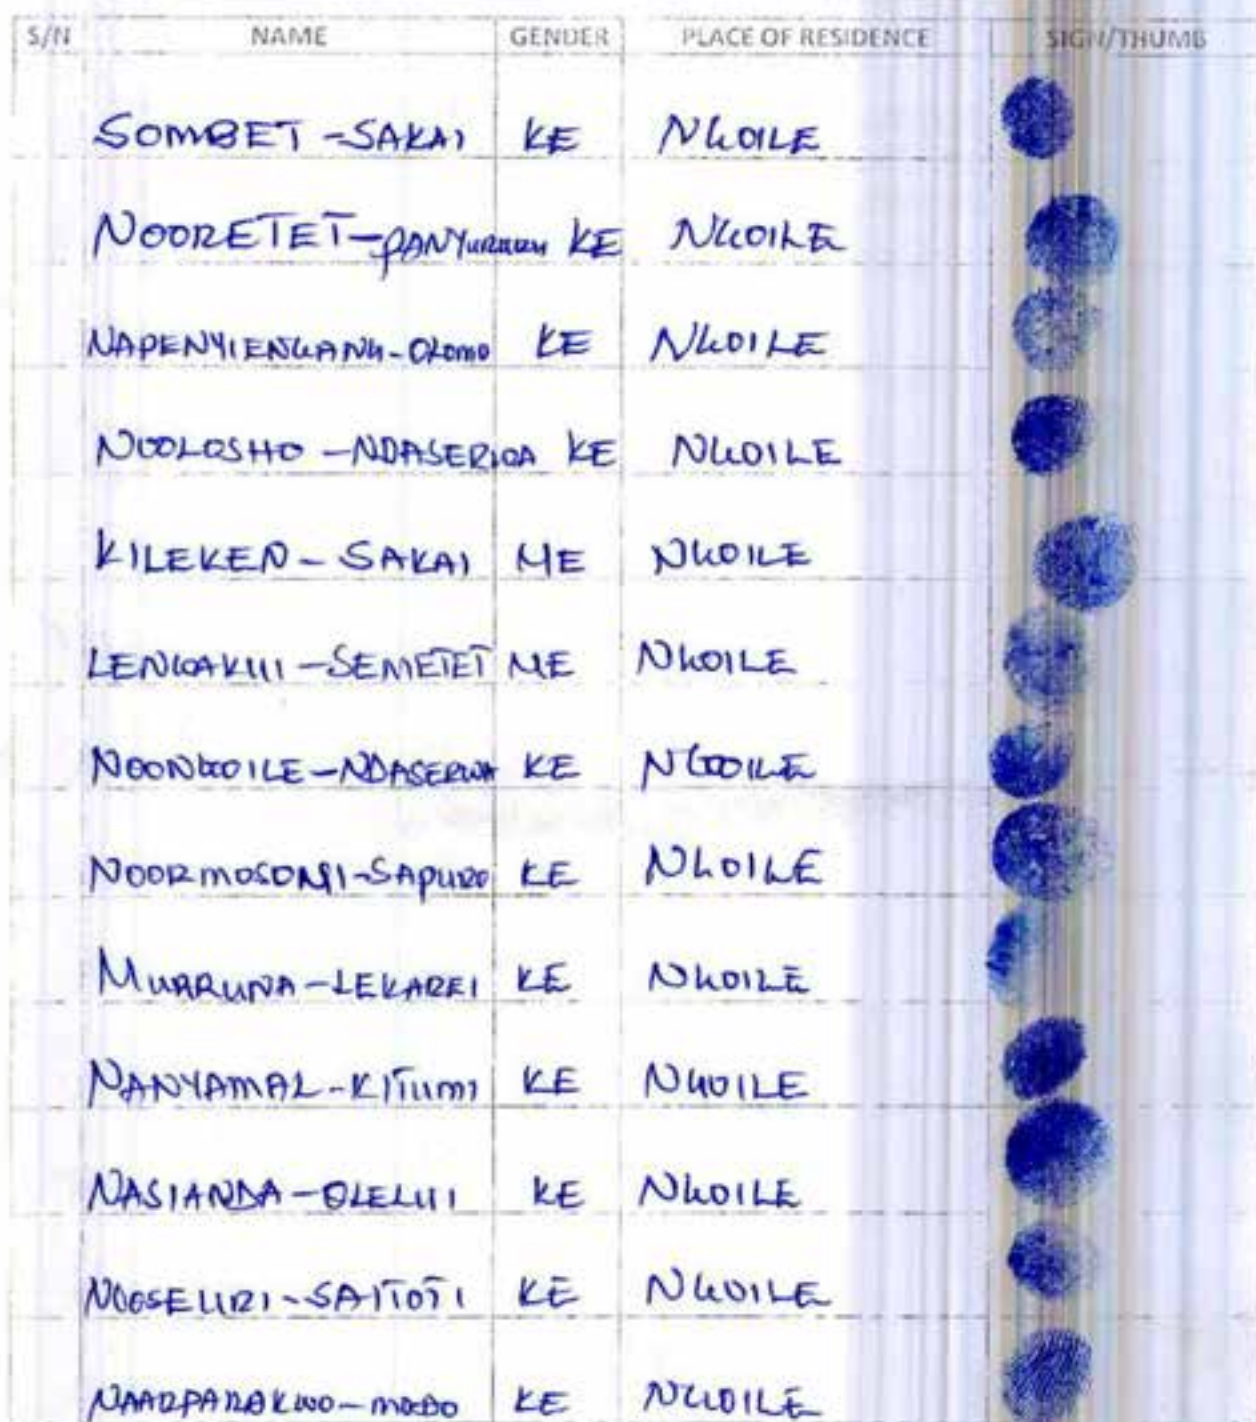 S/N NAME GENDER PLACE OF RESIDENCE SIGN/THUMB
SOMBET -SAKAI KE NKOILE
NOORETET- KE NKOILE
NAPENYIENKANK-OLOMO KE NKOILE
NOOLOSHO -NDASERIOA KE NKOILE
KILEKEN - SAKAI ME NKOILE
LENKAKIII -SEMETET ME NKOILE
NOONKOILE-NDASERWA KE NKOILE
NOORMOSONSI-SAPURO KE NKOILE
MURRUNA-LEKAREI KE NKOILE
NANYAMAL-KITUMI KE NKOILE
NASIANDA-OLELIII KE NKOILE
NOOSELIRI-SAITOTI KE NKOILE
KE NKOILE